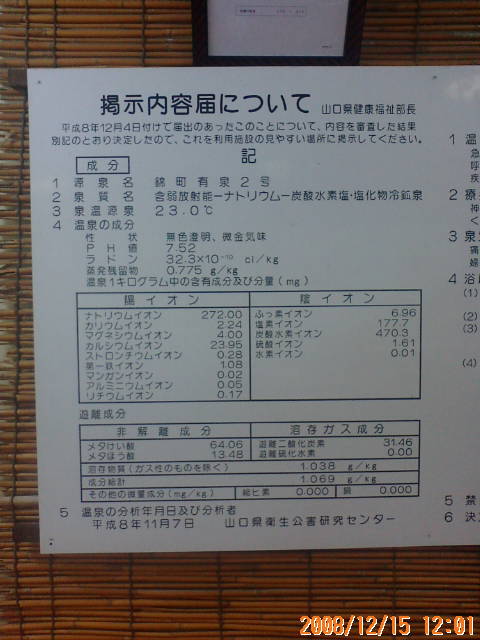 掲示内容届について 山口県健康福祉部長
平成8年12月4日付けで届出のあったこのことについて、内容を審査した結果
別記のとおり決定したので、これを利用施設の見やすい場所に掲示してください。
記
成分
1 源泉名 錦町有泉2号
2 泉質名 含弱放射能ーナトリウムー炭酸水素塩・塩化物冷鉱泉
3 泉温源泉 23.0℃
4 温泉の成分
性状 無色澄明、微金気味
PH値 7.52
ラドン 32.3×10⁻¹⁰ ci/kg
蒸発残留物 0.775 g/kg
温泉1キログラム中の含有成分及び分量(mg)
陽イオン 陰イオン
ナトリウムイオン 272.00 ふっ素イオン 6.96
カリウムイオン 2.24 塩素イオン 177.7
マグネシウムイオン 4.00 炭酸水素イオン 470.3
カルシウムイオン 23.95 硫酸イオン 1.61
ストロンチウムイオン 0.28 水素イオン 0.01
第一鉄イオン 1.08
マンガンイオン 0.02
アルミニウムイオン 0.05
リチウムイオン 0.17
遊離成分
非解離成分 溶存ガス成分
メタけい酸 64.06 遊離二酸化炭素 31.46
メタほう酸 13.48 遊離硫化水素 0.00
溶存物質(ガス性のものを除く) 1.038 g/kg
成分総計 1.069 g/kg
その他の微量成分(mg/kg) 総ヒ素 0.000 銅 0.000
5 温泉の分析年月日及び分析者
平成8年11月7日 山口県衛生公害研究センター
1 温
2 療
神
3 泉
痛
婦
4 浴
(1)
(2)
(3)
(4)
5 禁
6 決
2008/12/15 12:01